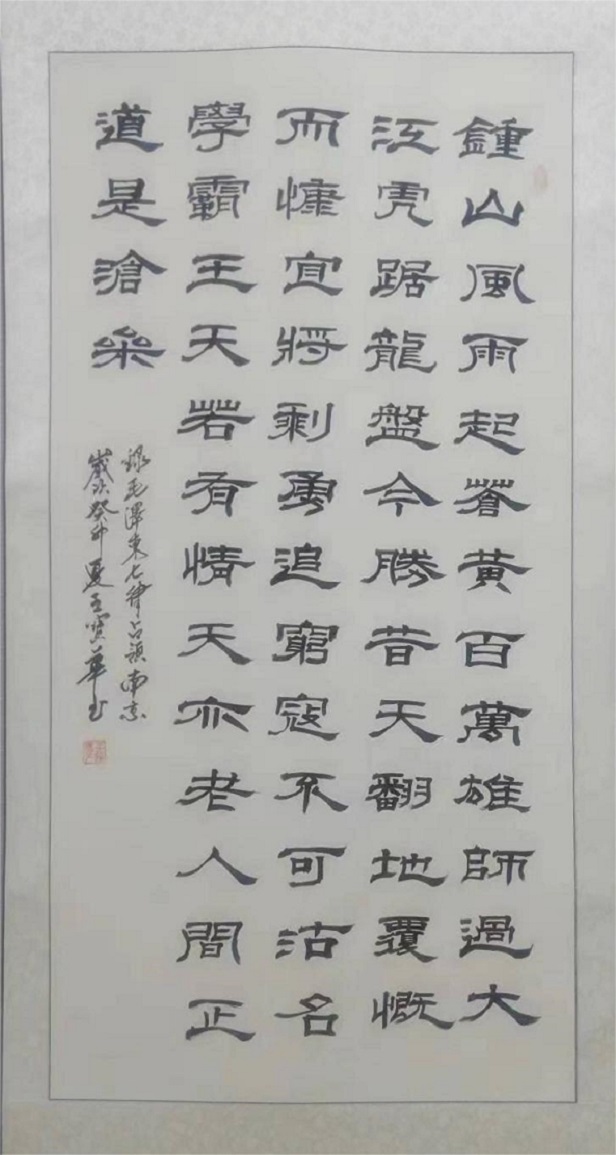 鍾山風雨起蒼黃百萬雄師過大
江虎踞龍盤今勝昔天翻地覆慨
而慷宜將剩勇追窮寇不可沽名
學霸王天若有情天亦老人間正
道是滄桑
錄毛澤東七律占領南京
歲次癸卯夏王寶華書